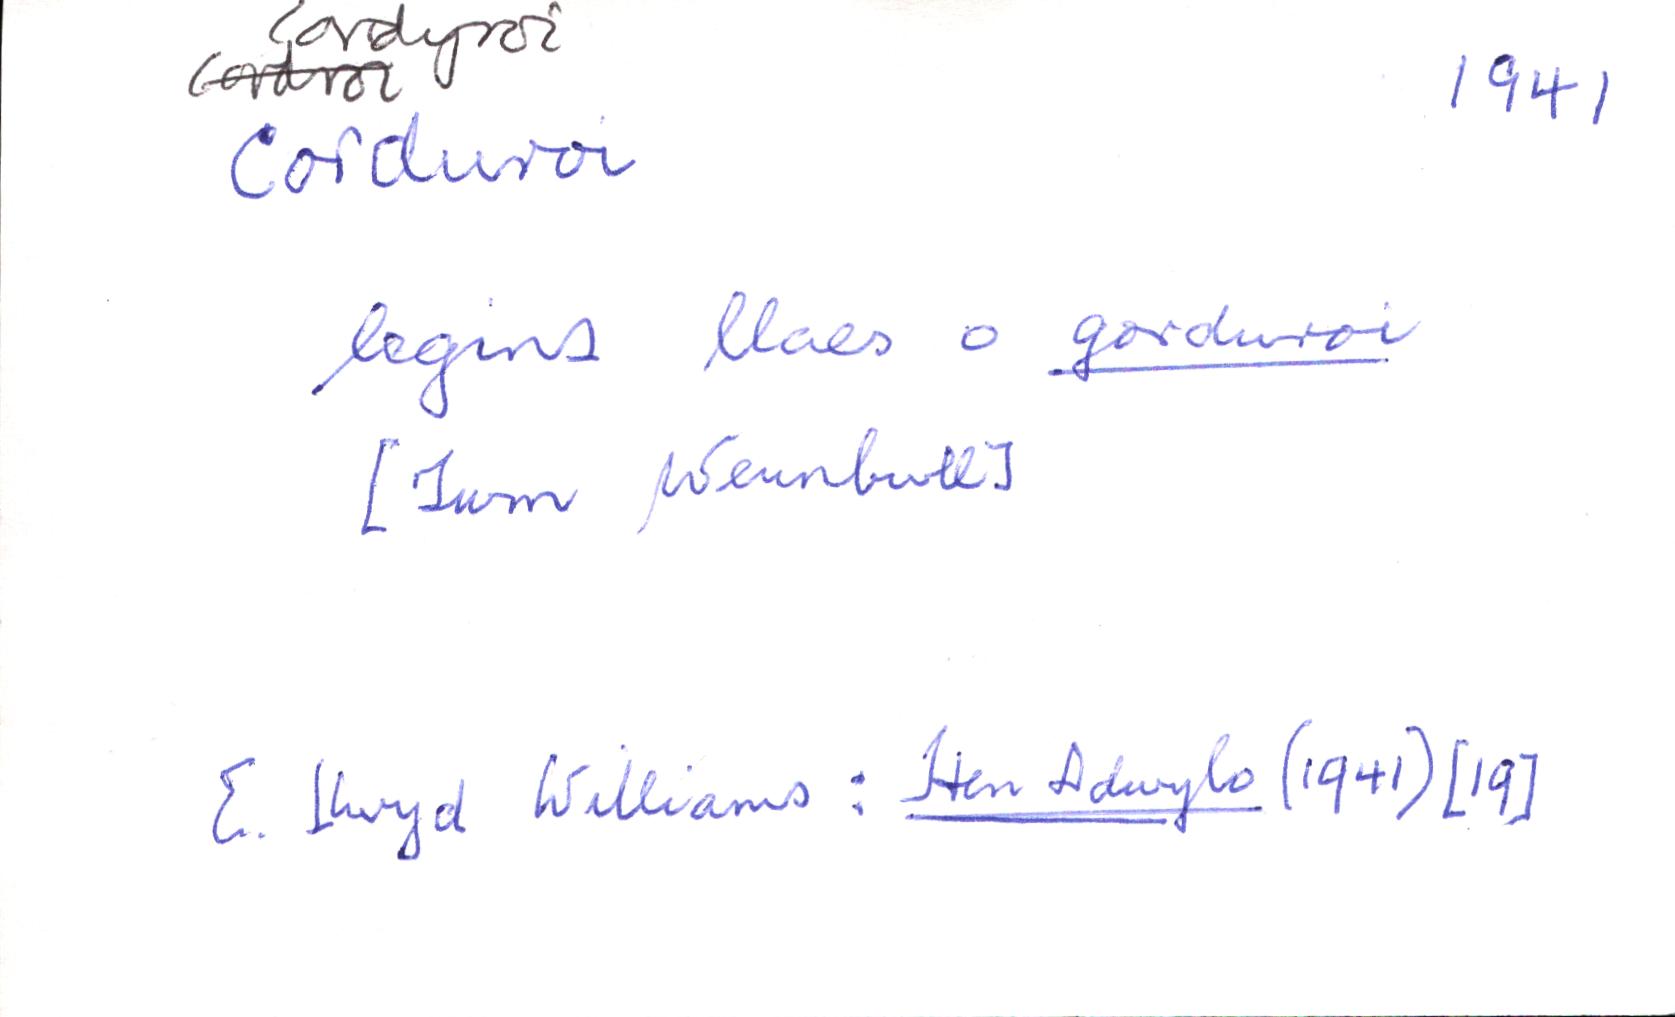 Cordyroi
Cordroi
Corduroi 1941
legins llaes o gorduroi
[Twm Weunbwll]
E. Llwyd Williams : Hen Ddwylo (1941) [19]